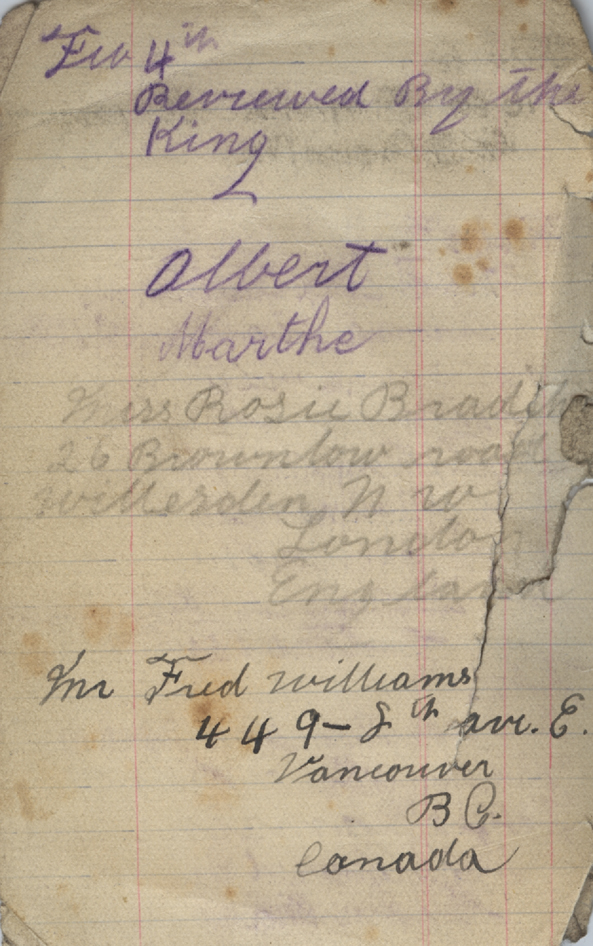 Feb 4th
Reviewed By the
King
Albert
Marthe
Miss Rosie
26 Brownlow road
Willesden N W
London
England
Mr Fred Williams
449-8th ave. E.
Vancouver
B C.
Canada